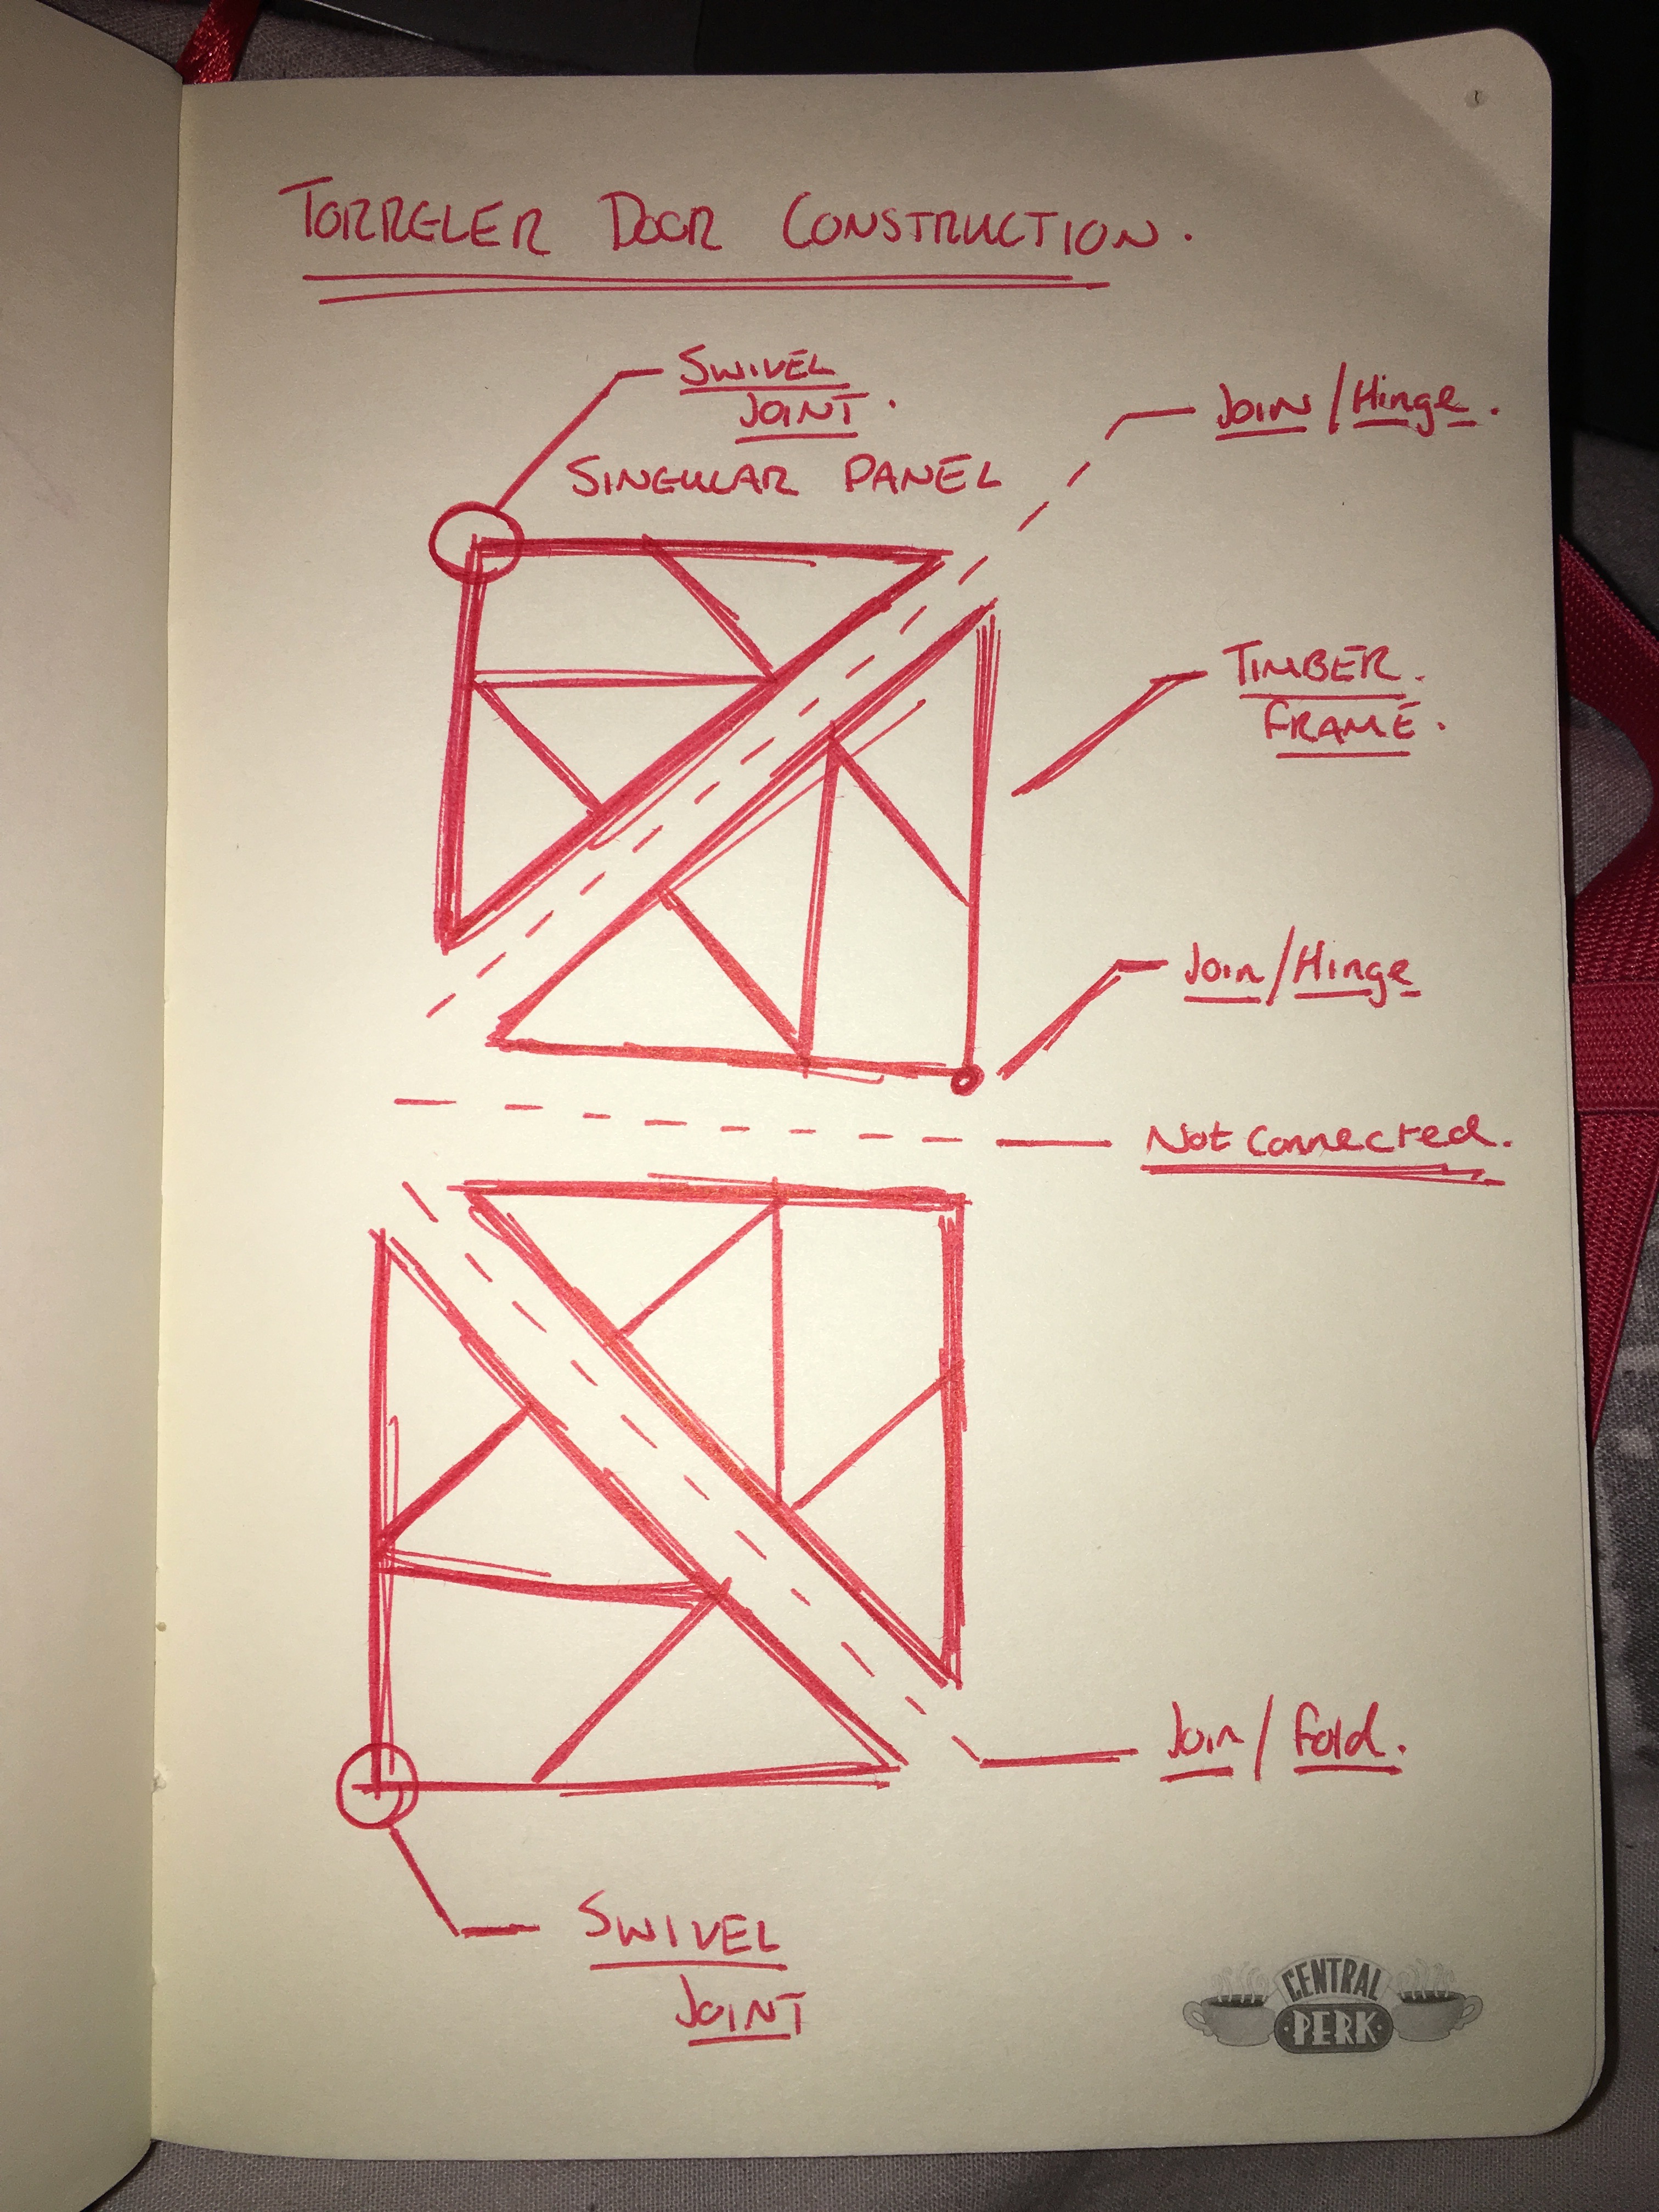 TORRELER DOOR CONSTRUCTION.
SWIVEL
JOINT.
JOIN/Hinge.
SINGULAR PANEL
TIMBER.
FRAME.
Join/Hinge
Not Connected.
Join/Fold.
SWIVEL
JOINT
CENTRAL
PERK